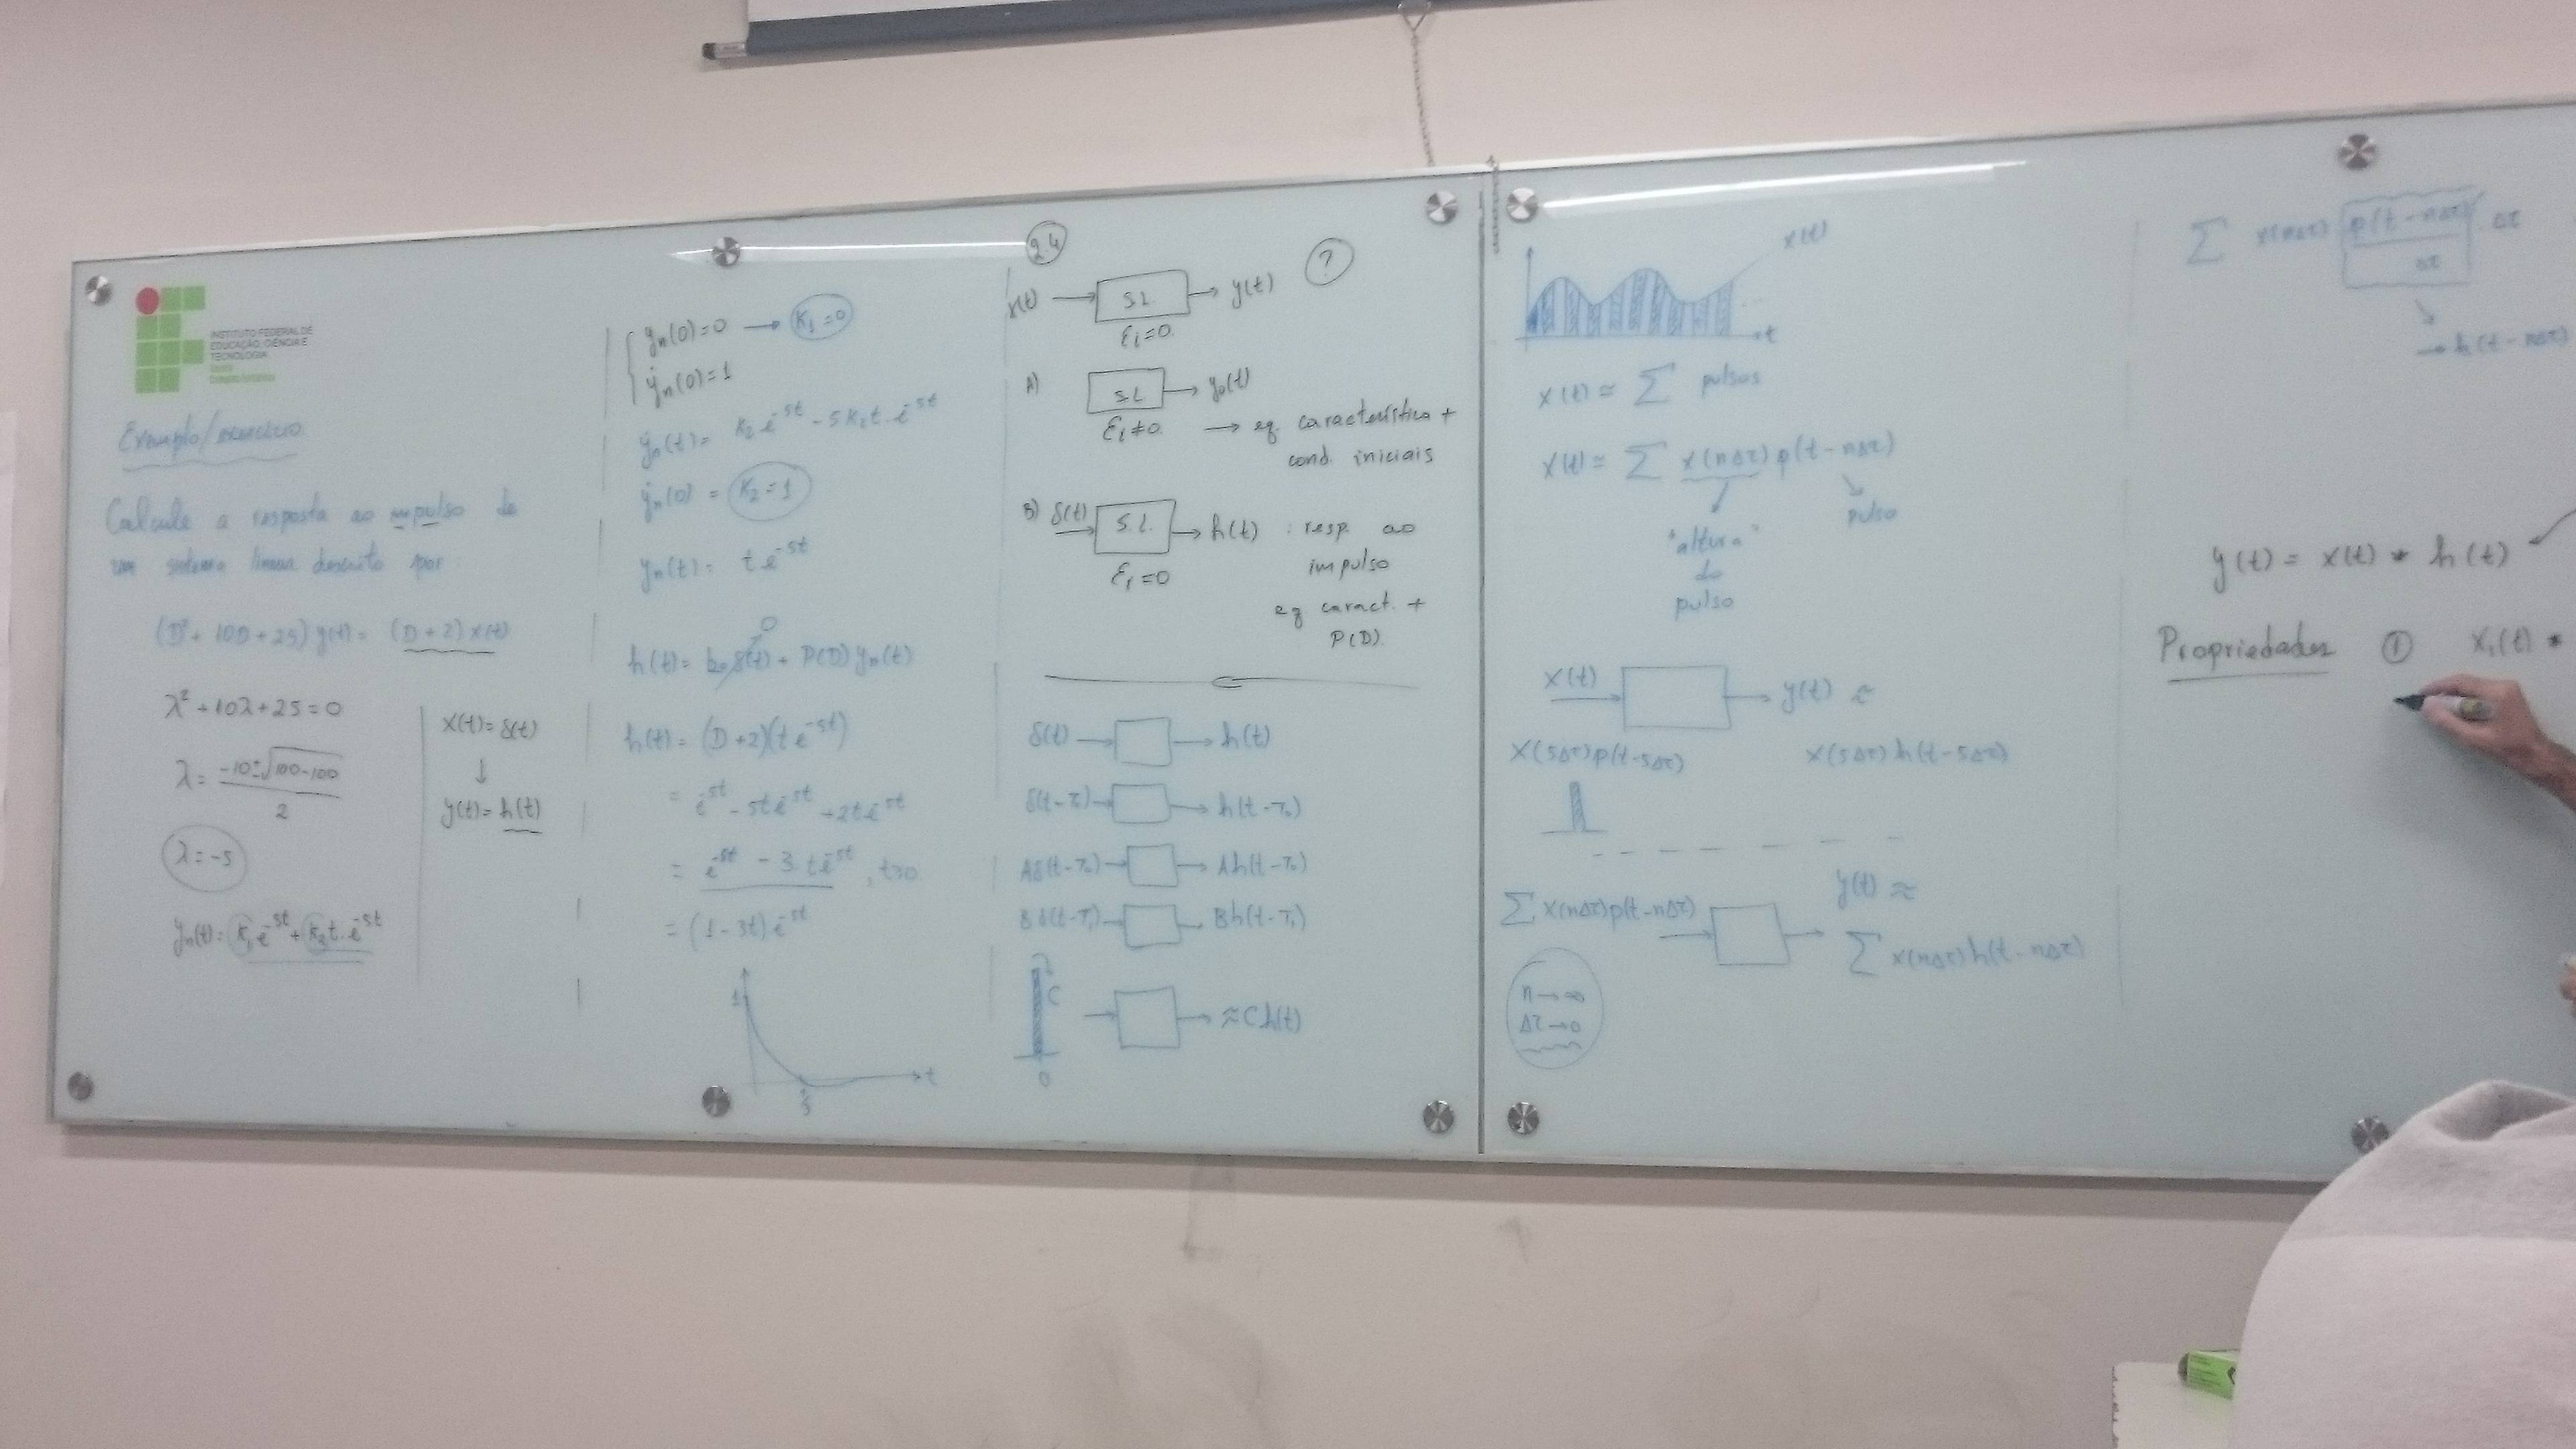 INSTITUTO FEDERAL DE
EDUCAÇÃO, CIÊNCIA E
TECNOLOGIA
Exemplo/exercício
Calcule a resposta ao impulso de
um sistema linear descrito por
(D² + 10D + 25) y(t) = (D + 2) x(t)
λ² + 10λ + 25 = 0
λ = (-10 ± √(100-100)) / 2
λ = -5
yn(t) = K₁e^-5t + K₂t.e^-5t
x(t) = δ(t)
↓
y(t) = h(t)
yn(0) = 0 → K₁ = 0
ẏn(0) = 1
K₂ e^-5t - 5K₂t.e^-5t
ẏn(0) = K₂ = 1
yn(t) = t e^-5t
h(t) = b₀ δ(t) + P(D) yn(t)
0
h(t) = (D+2)(t e^-5t)
= e^-5t - 5te^-5t + 2te^-5t
= e^-5t - 3te^-5t, t≥0
= (1-3t)e^-5t
1
t
2.4
x(t) → S.L. → y(t) ?
Ei = 0
A) S.L → y₀(t)
Ei ≠ 0 → eq. característica +
cond. iniciais
B) δ(t) → S.L. → h(t) : resp. ao
Ei = 0 impulso
eq caract. +
P(D)
δ(t) → h(t)
h(t-τ₀)
Aδ(t-τ₀) → Ah(t-τ₀)
Bδ(t-τ₁) → Bh(t-τ₁)
C
→ ≈ C h(t)
0
x(t)
t
x(t) ≈ Σ pulsos
x(t) ≈ Σ x(nΔτ) p(t-nΔτ)
"altura"
do
pulso
pulso
x(t) → y(t) ≈
x(5Δτ)p(t-5Δτ) x(5Δτ)h(t-5Δτ)
y(t) ≈
Σ x(nΔτ)p(t-nΔτ) → Σ x(nΔτ)h(t-nΔτ)
n → ∞
Δτ → 0
Σ x(nΔτ) p(t-nΔτ)/Δτ . Δτ
→ h(t-nΔτ)
y(t) = x(t) * h(t)
Propriedades ① x₁(t) *